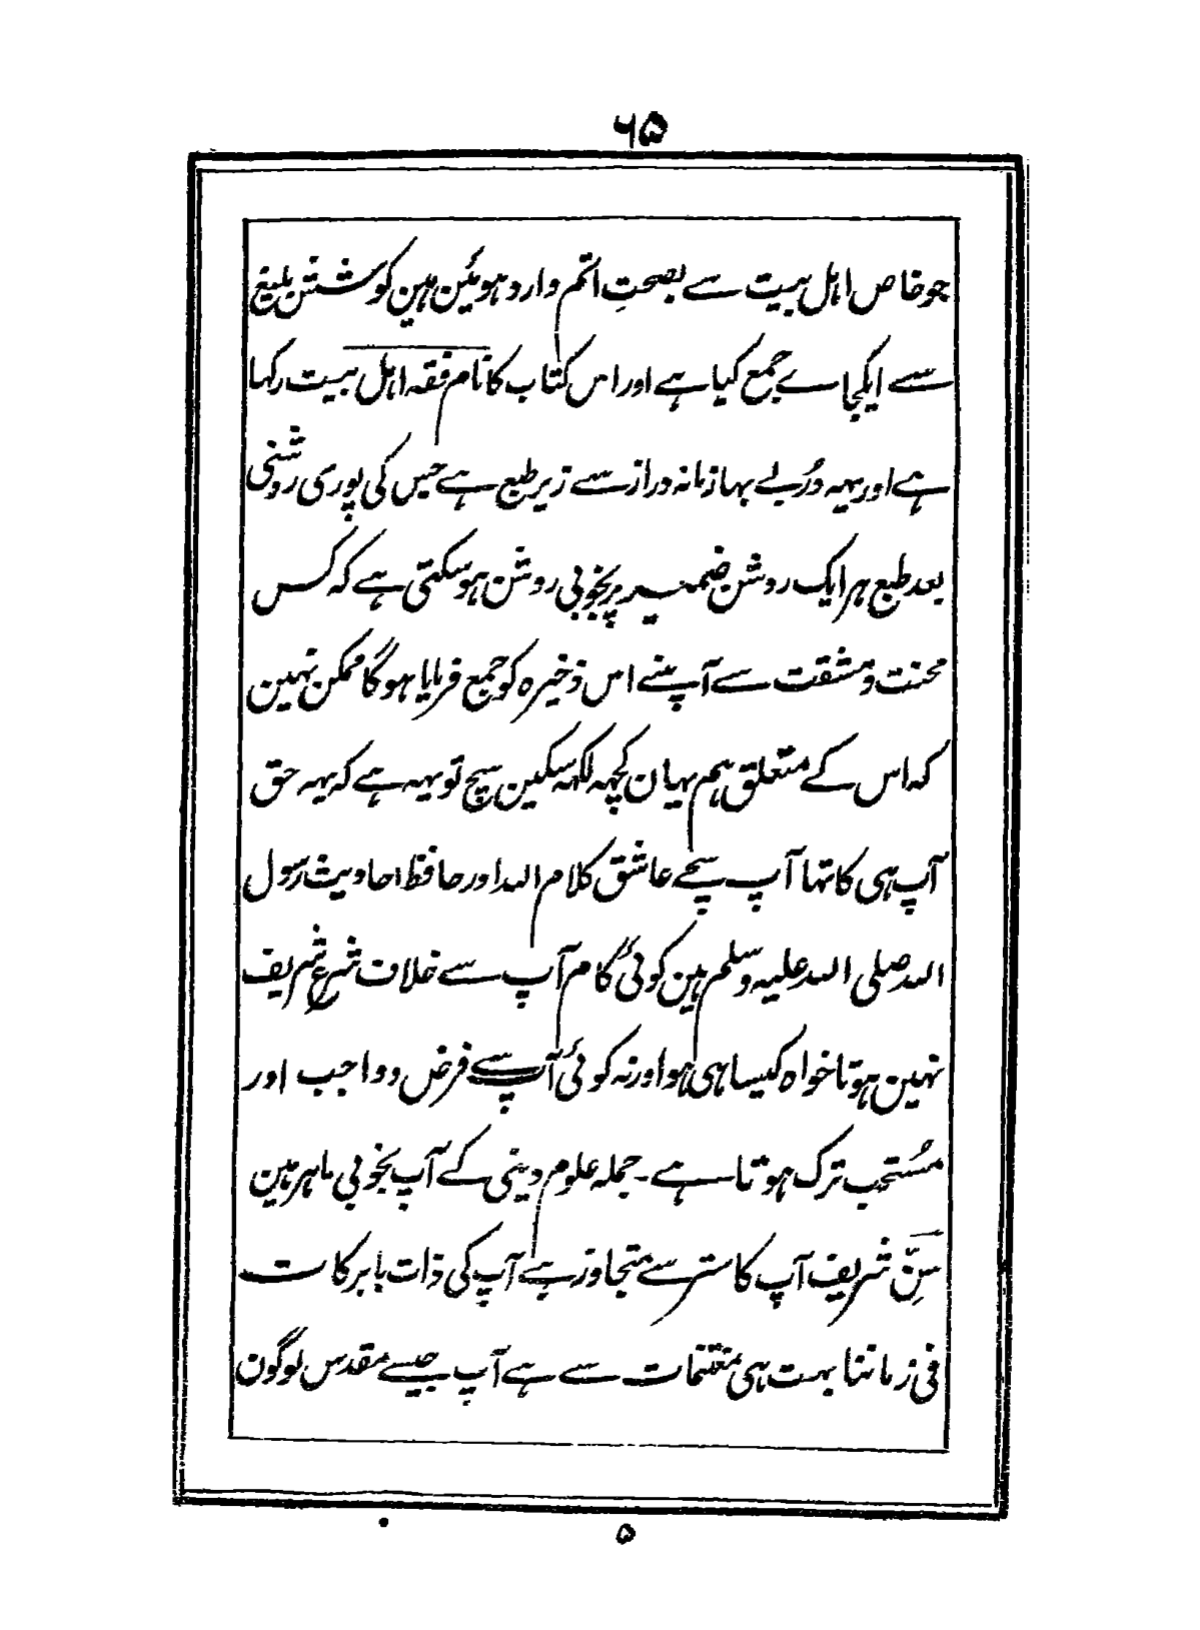 ۶۵
جو خاص اہل بیت سے بصحتِ اتم وارد ہوئین ہین کوششن بلیغ
سے ایکجاے جمع کیا ہے اور اس کتاب کا نام فقہ اہل بیت رکہا
ہے اور یہہ دُر بے بہا زمانہ دراز سے زیر طبع ہے جس کی پوری روشنی
بعد طبع ہر ایک روشن ضمیر پر بخوبی روشن ہو سکتی ہے کہ کس
محنت و مشقت سے آپنے اس ذخیرہ کو جمع فرمایا ہوگا ممکن نہین
کہ اس کے متعلق ہم یہان کچہہ لکہہ سکین سچ تو یہہ ہے کہ یہہ حق
آپ ہی کا تہا آپ سچے عاشق کلام اللہ اور حافظ احادیث رسول
اللہ صلی اللہ علیہ وسلم ہین کوئی کام آپ سے خلاف شرع شریف
نہین ہوتا خواہ کیسا ہی ہو اور نہ کوئی آپ سے فرض و واجب اور
مُستحب ترک ہوتا ہے ۔ جملہ علوم دینی کے آپ بخوبی ماہر ہین
سِنّ شریف آپ کا ستر سے متجاوز ہے آپ کی ذات بابرکات
فی زماننا بہت ہی مغتنمات سے ہے آپ جیسے مقدس لوگون
۵